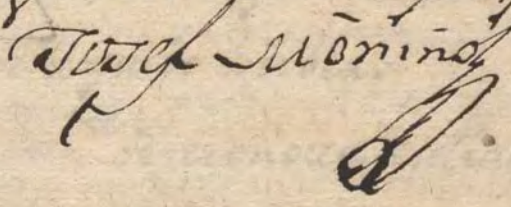 Josef Moñino